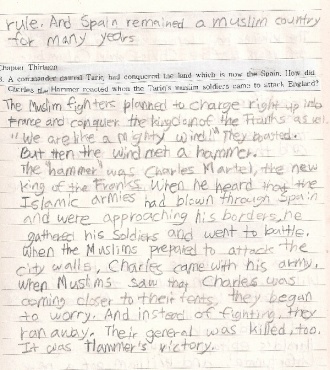 rule. And Spain remained a muslim country
for many years
Chapter Thirteen
8. A commander named Tariq, had conquered the land which is now the Spain. How did
Charles the Hammer reacted when the Tariq's muslim soldiers came to attack England?
The Muslim fighters planned to charge right up into
France and conquer the kingdom of the Franks as well.
"We are like a mighty wind!" They boasted.
But then the wind met a hammer.
The hammer was Charles Martel, the new
king of the Franks. When he heard that the
Islamic armies had blown through Spain
and were approaching his borders, he
gathered his soldiers and went to battle.
When the Muslims prepared to attack the
city walls, Charles came with his army.
When Muslims saw that Charles was
coming closer to their tents, they began
to worry. And instead of fighting, they
ran away. Their general was killed, too.
It was Hammer's victory.